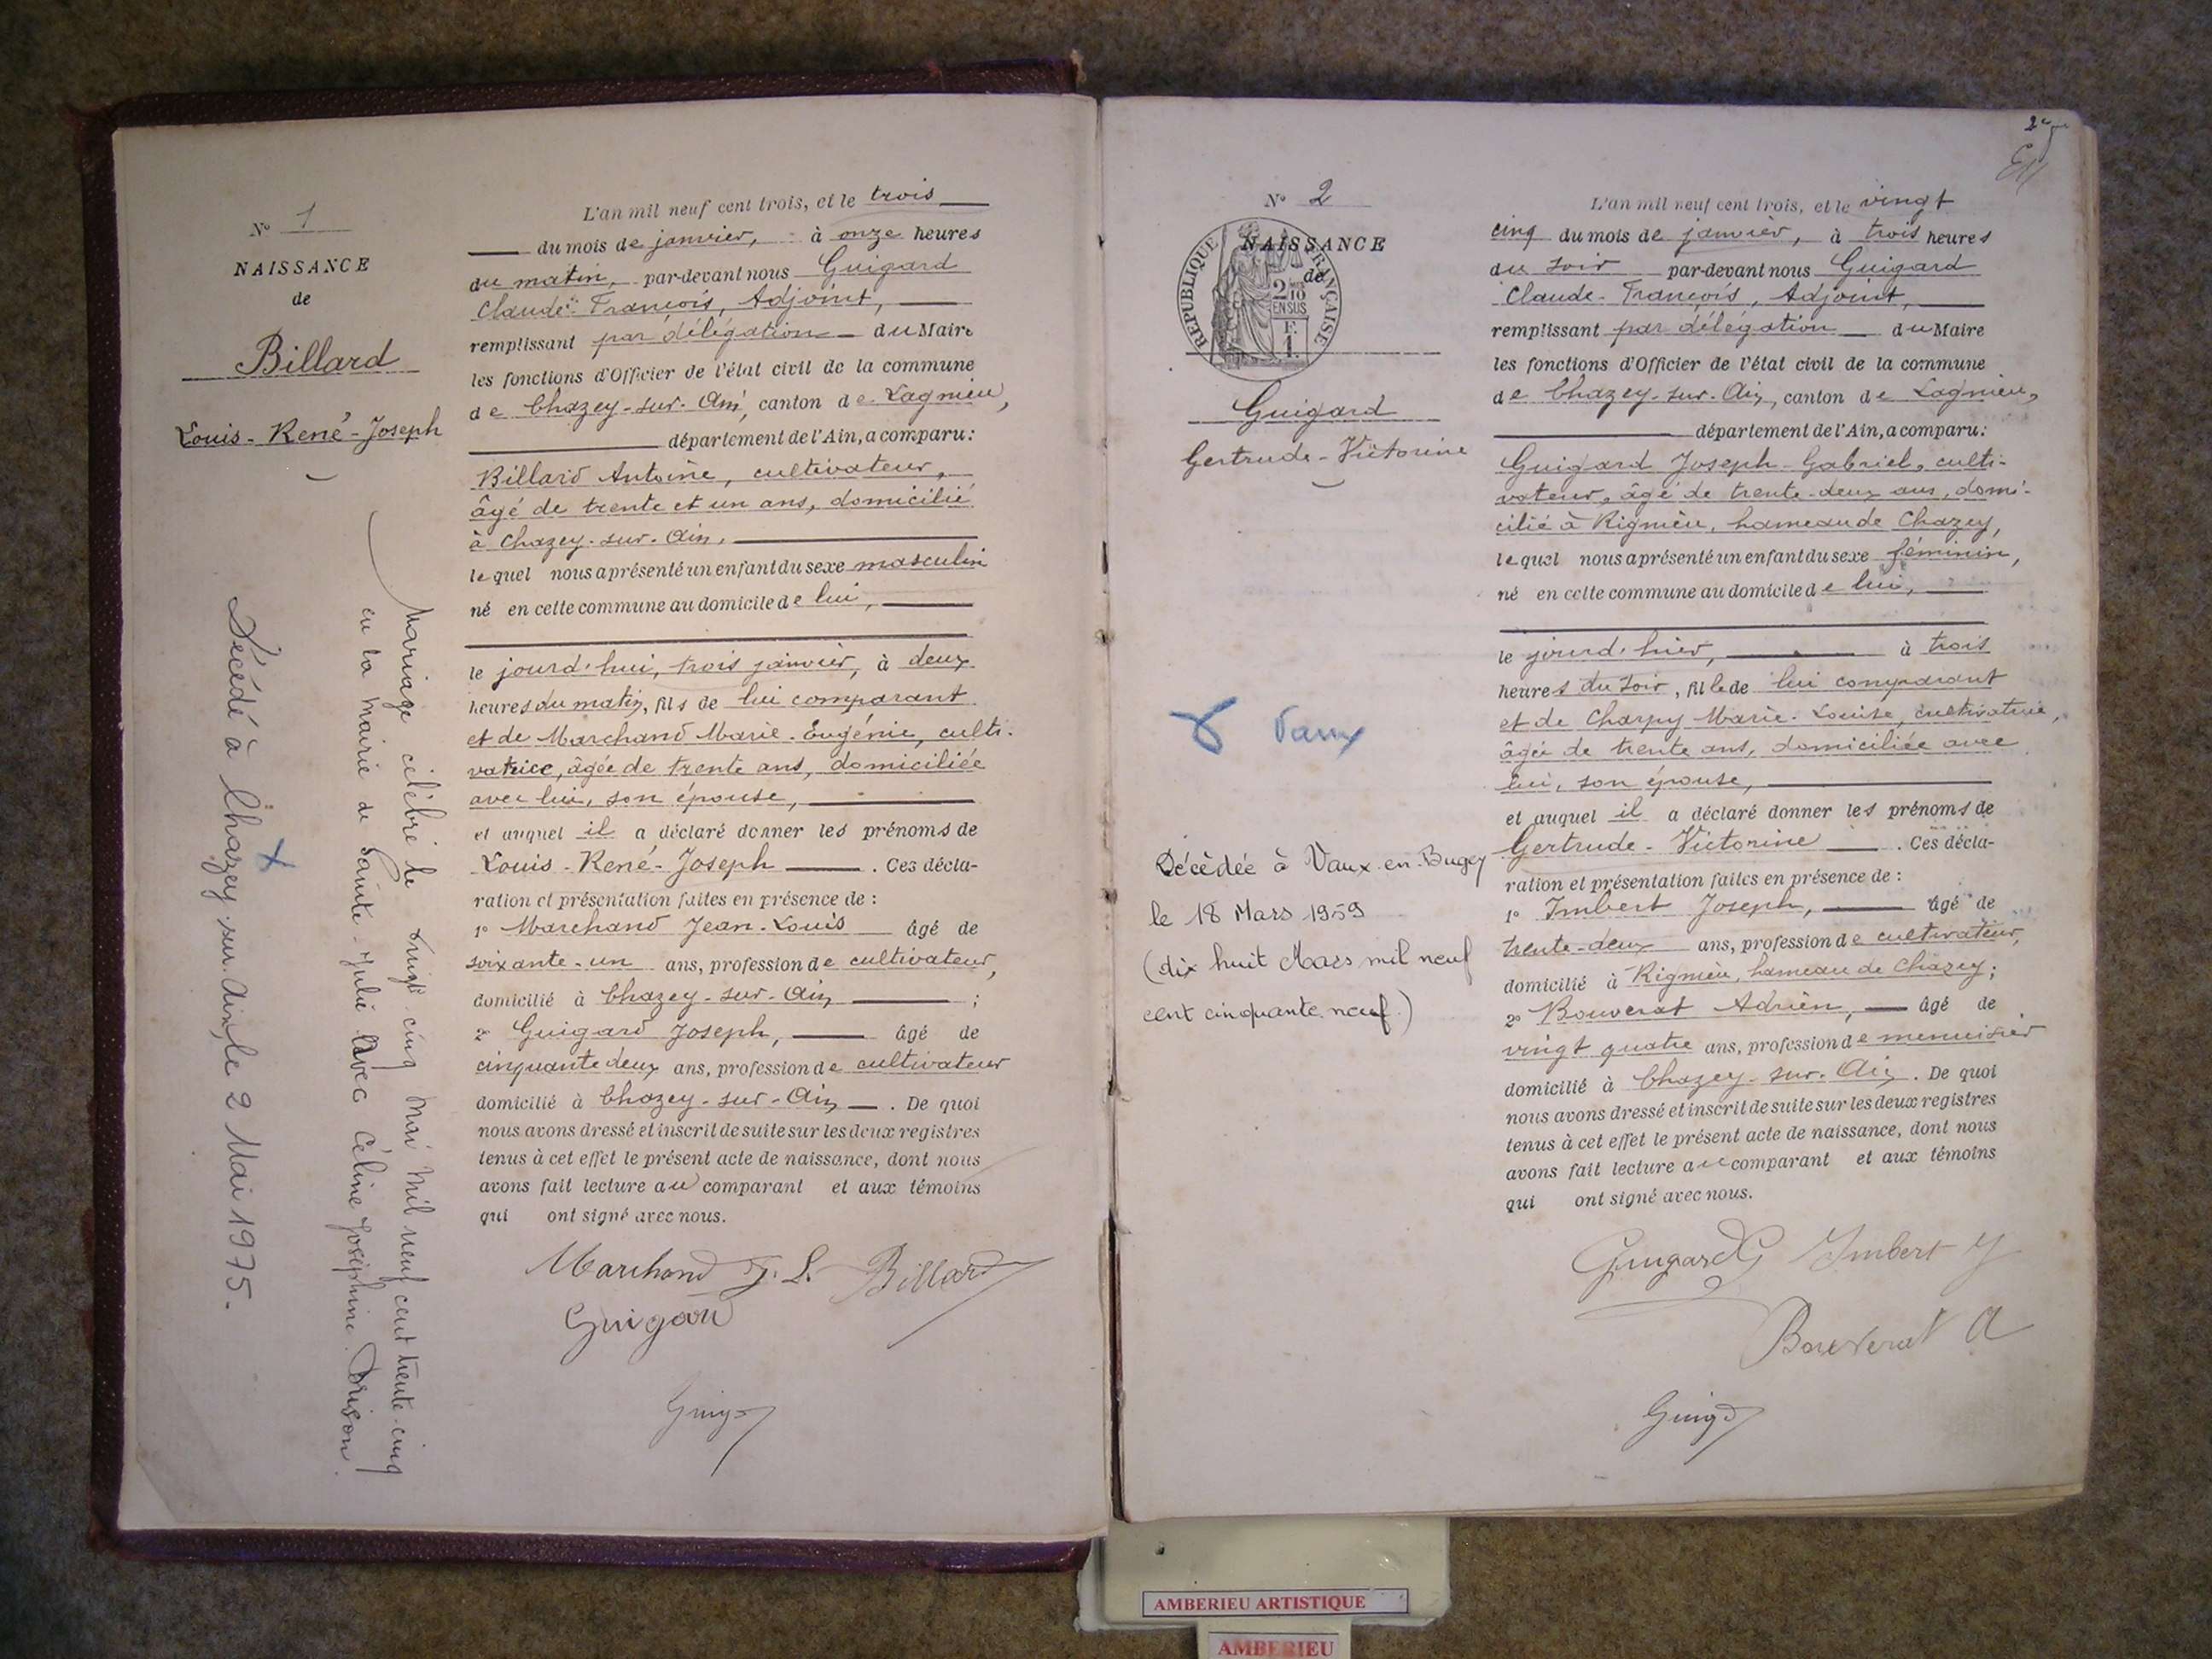 N° 1
NAISSANCE
de
Billard
Louis-René-Joseph
Mariage célébré le vingt cinq Mai mil neuf cent trente-cinq
en la mairie de Sainte-Julie avec Céline Joséphine
Décédé à Chazey-sur-Ain, le 2 Mai 1975.
L'an mil neuf cent trois, et le trois
du mois de janvier, à onze heures
du matin, par-devant nous Guigard
Claude-François, Adjoint,
remplissant par délégation du Maire
les fonctions d'Officier de l'état civil de la commune
de Chazey-sur-Ain, canton de Lagnieu,
département de l'Ain, a comparu:
Billard Antoine, cultivateur,
âgé de trente et un ans, domicilié
à Chazey-sur-Ain,
lequel nous a présenté un enfant du sexe masculin
né en cette commune au domicile de lui,
le jourd'hui, trois janvier, à deux
heures du matin, fils de lui comparant
et de Marchand Marie-Eugénie, culti-
vatrice, âgée de trente ans, domiciliée
avec lui, son épouse,
et auquel il a déclaré donner les prénoms de
Louis-René-Joseph. Ces décla-
ration et présentation faites en présence de :
1° Marchand Jean-Louis âgé de
soixante-un ans, profession de cultivateur,
domicilié à Chazey-sur-Ain ;
2° Guigard Joseph, âgé de
cinquante deux ans, profession de cultivateur
domicilié à Chazey-sur-Ain. De quoi
nous avons dressé et inscrit de suite sur les deux registres
tenus à cet effet le présent acte de naissance, dont nous
avons fait lecture au comparant et aux témoins
qui ont signé avec nous.
Marchand J. L. Billard
Guigard
N° 2
NAISSANCE
de
REPUBLIQUE FRANÇAISE
2/10
EN SUS
F.
1.
Guigard
Gertrude-Victorine
Vaux
Décédée à Vaux-en-Bugey
le 18 Mars 1959
(dix huit Mars mil neuf
cent cinquante neuf.)
L'an mil neuf cent trois, et le vingt
cinq du mois de janvier, à trois heures
du soir par-devant nous Guigard
Claude-François, Adjoint,
remplissant par délégation du Maire
les fonctions d'Officier de l'état civil de la commune
de Chazey-sur-Ain, canton de Lagnieu,
département de l'Ain, a comparu:
Guigard Joseph-Gabriel, culti-
vateur, âgé de trente-deux ans, domi-
cilié à Rignieu, hameau de Chazey,
lequel nous a présenté un enfant du sexe féminin,
né en cette commune au domicile de lui,
le jourd'hier, à trois
heures du soir, fille de lui comparant
et de Charpy Marie-Louise, cultivatrice,
âgée de trente ans, domiciliée avec
lui, son épouse,
et auquel il a déclaré donner les prénoms de
Gertrude-Victorine. Ces décla-
ration et présentation faites en présence de :
1° Imbert Joseph, âgé de
trente-deux ans, profession de cultivateur,
domicilié à Rignieu, hameau de Chazey;
2° Bouverat Adrien, âgé de
vingt quatre ans, profession de menuisier
domicilié à Chazey-sur-Ain. De quoi
nous avons dressé et inscrit de suite sur les deux registres
tenus à cet effet le présent acte de naissance, dont nous
avons fait lecture au comparant et aux témoins
qui ont signé avec nous.
Guigard G Imbert J
Bouverat A
AMBERIEU ARTISTIQUE
AMBERIEU